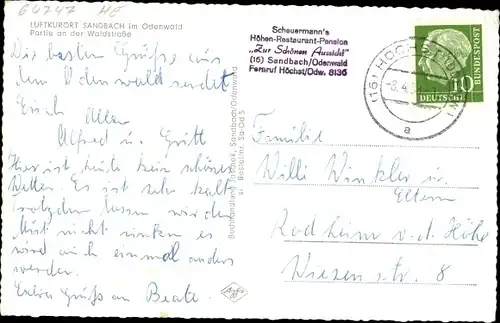 60747 HE
LUFTKURORT SANDBACH im Odenwald
Partie an der Waldstraße
Die besten Grüße aus
dem Odenwald sendet
Euch Allen
Alfred u. Gritt
Hier ist heute kein schönes
Wetter. Es ist sehr kalt
trotzdem lassen wir den
Mut nicht sinken es
wird auch einmal anders
werden.
Extra Grüße an Beate.
Buchhandlung Taschek, Sandbach/Odenwald
Bestell.nr. Sa-Od 5
Scheuermann's
Höhen-Restaurant-Pension
„Zur Schönen Aussicht"
(16) Sandbach/Odenwald
Fernruf Höchst/Odw. 8136
(16) HÖCHST
a
10
DEUTSCHE
Familie
Willi Winkler u.
Eltern
Rodheim v.d. Höhe
Wiesenstr. 8